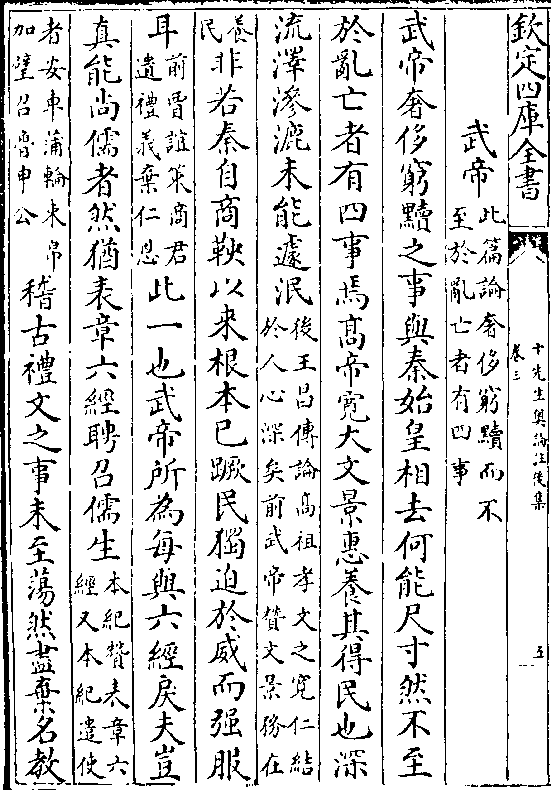 欽定四庫全書
十先生奧論註後集
卷三
五
武帝
此篇論奢侈窮黷而不
至於亂亡者有四事
武帝奢侈窮黷之事與秦始皇相去何能尺寸然不至
於亂亡者有四事焉高帝寛大文景惠養其得民也深
流澤滲漉未能遽泯
後王昌傳論高祖孝文之寛仁結
於人心深矣前武帝贊文景務在
養
民
非若秦自商鞅以来根本已蹶民獨迫於威而强服
耳
前賈誼策商君
遺禮義棄仁恩
此一也武帝所為每與六經戾夫豈
真能尚儒者然猶表章六經聘召儒生
本紀贊表章六
經又本紀遣使
者安車蒲輪束帛
加璧召魯申公
稽古禮文之事未至蕩然盡棄名教